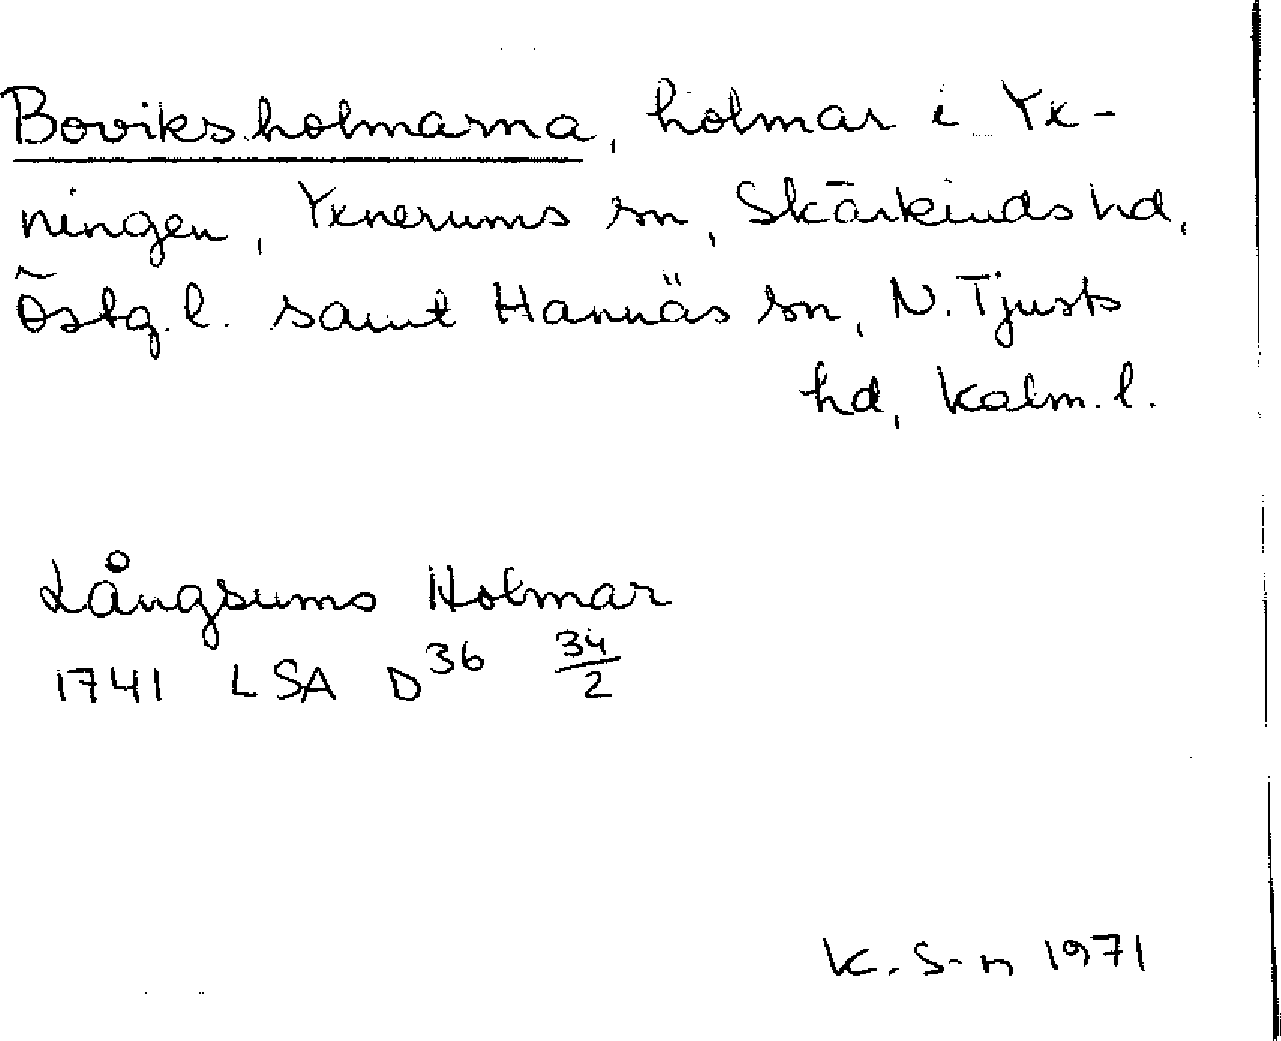 Boviksholmarna, holmar i Yx-
ningen, Yxnerums sn, Skärkinds hd,
Östg. l. samt Hannäs sn, N. Tjusts
hd, Kalm. l.
Långsums Holmar
1741 LSA D36 34/2
K. S-n 1971